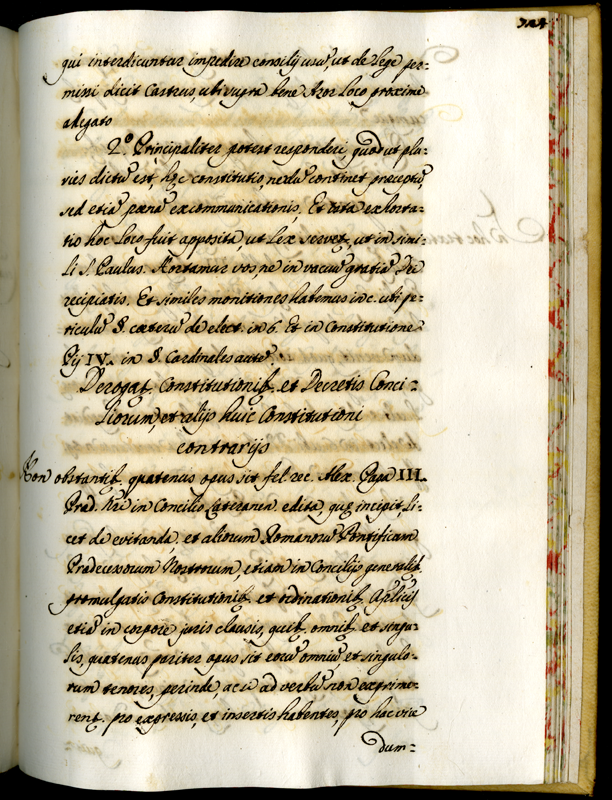 qui interdicuntur impedire consilij usu' ut de lege per=
missi dicit Castrus, ubi supra bene Azor loco proxime
allegato
2.º Principaliter potest responderi, quod ut plu=
ries dictu' est, hęc constitutio, nedu' continet preceptu',
sed etia' poena' excommunicationis, Et ista exhorta=
tio hoc loco fuit apposita ut lex servet., ut in simi=
li S. Paulus. Hortamur vos, ne in vacuu' gratia' Dei
recipiatis. Et similes monitiones habemus in c. ubi pe=
riculu' §. caeteru' de elect. in 6. Et in Constitutione
Pij IV. in §. Cardinales aute'
Derogat. Constitutionib. et Decretis Conci=
liorum, et alijs huic Constitutioni
contrarijs
Non obstantib. quatenus opus sit fel. rec. Alex. Papa III.
Pred. Nri in Concilio Lateranen. edita, quę incipit Li=
cet de evitanda, et aliorum Romanoru' Pontificum
Predecessorum Nostrorum, etiam in Concilijs generalib.
promulgatis Constitutionib. et ordinationib. Aplicis
etia' in corpore juris clausis, quib. omnib. et singu=
lis, quatenus pariter opus sit eoru' omniu' et singulo=
rum tenores, perinde, ac si ad verbu' non exprime=
rent. pro expressis, et insertis habentes, pro hac vice
dum=